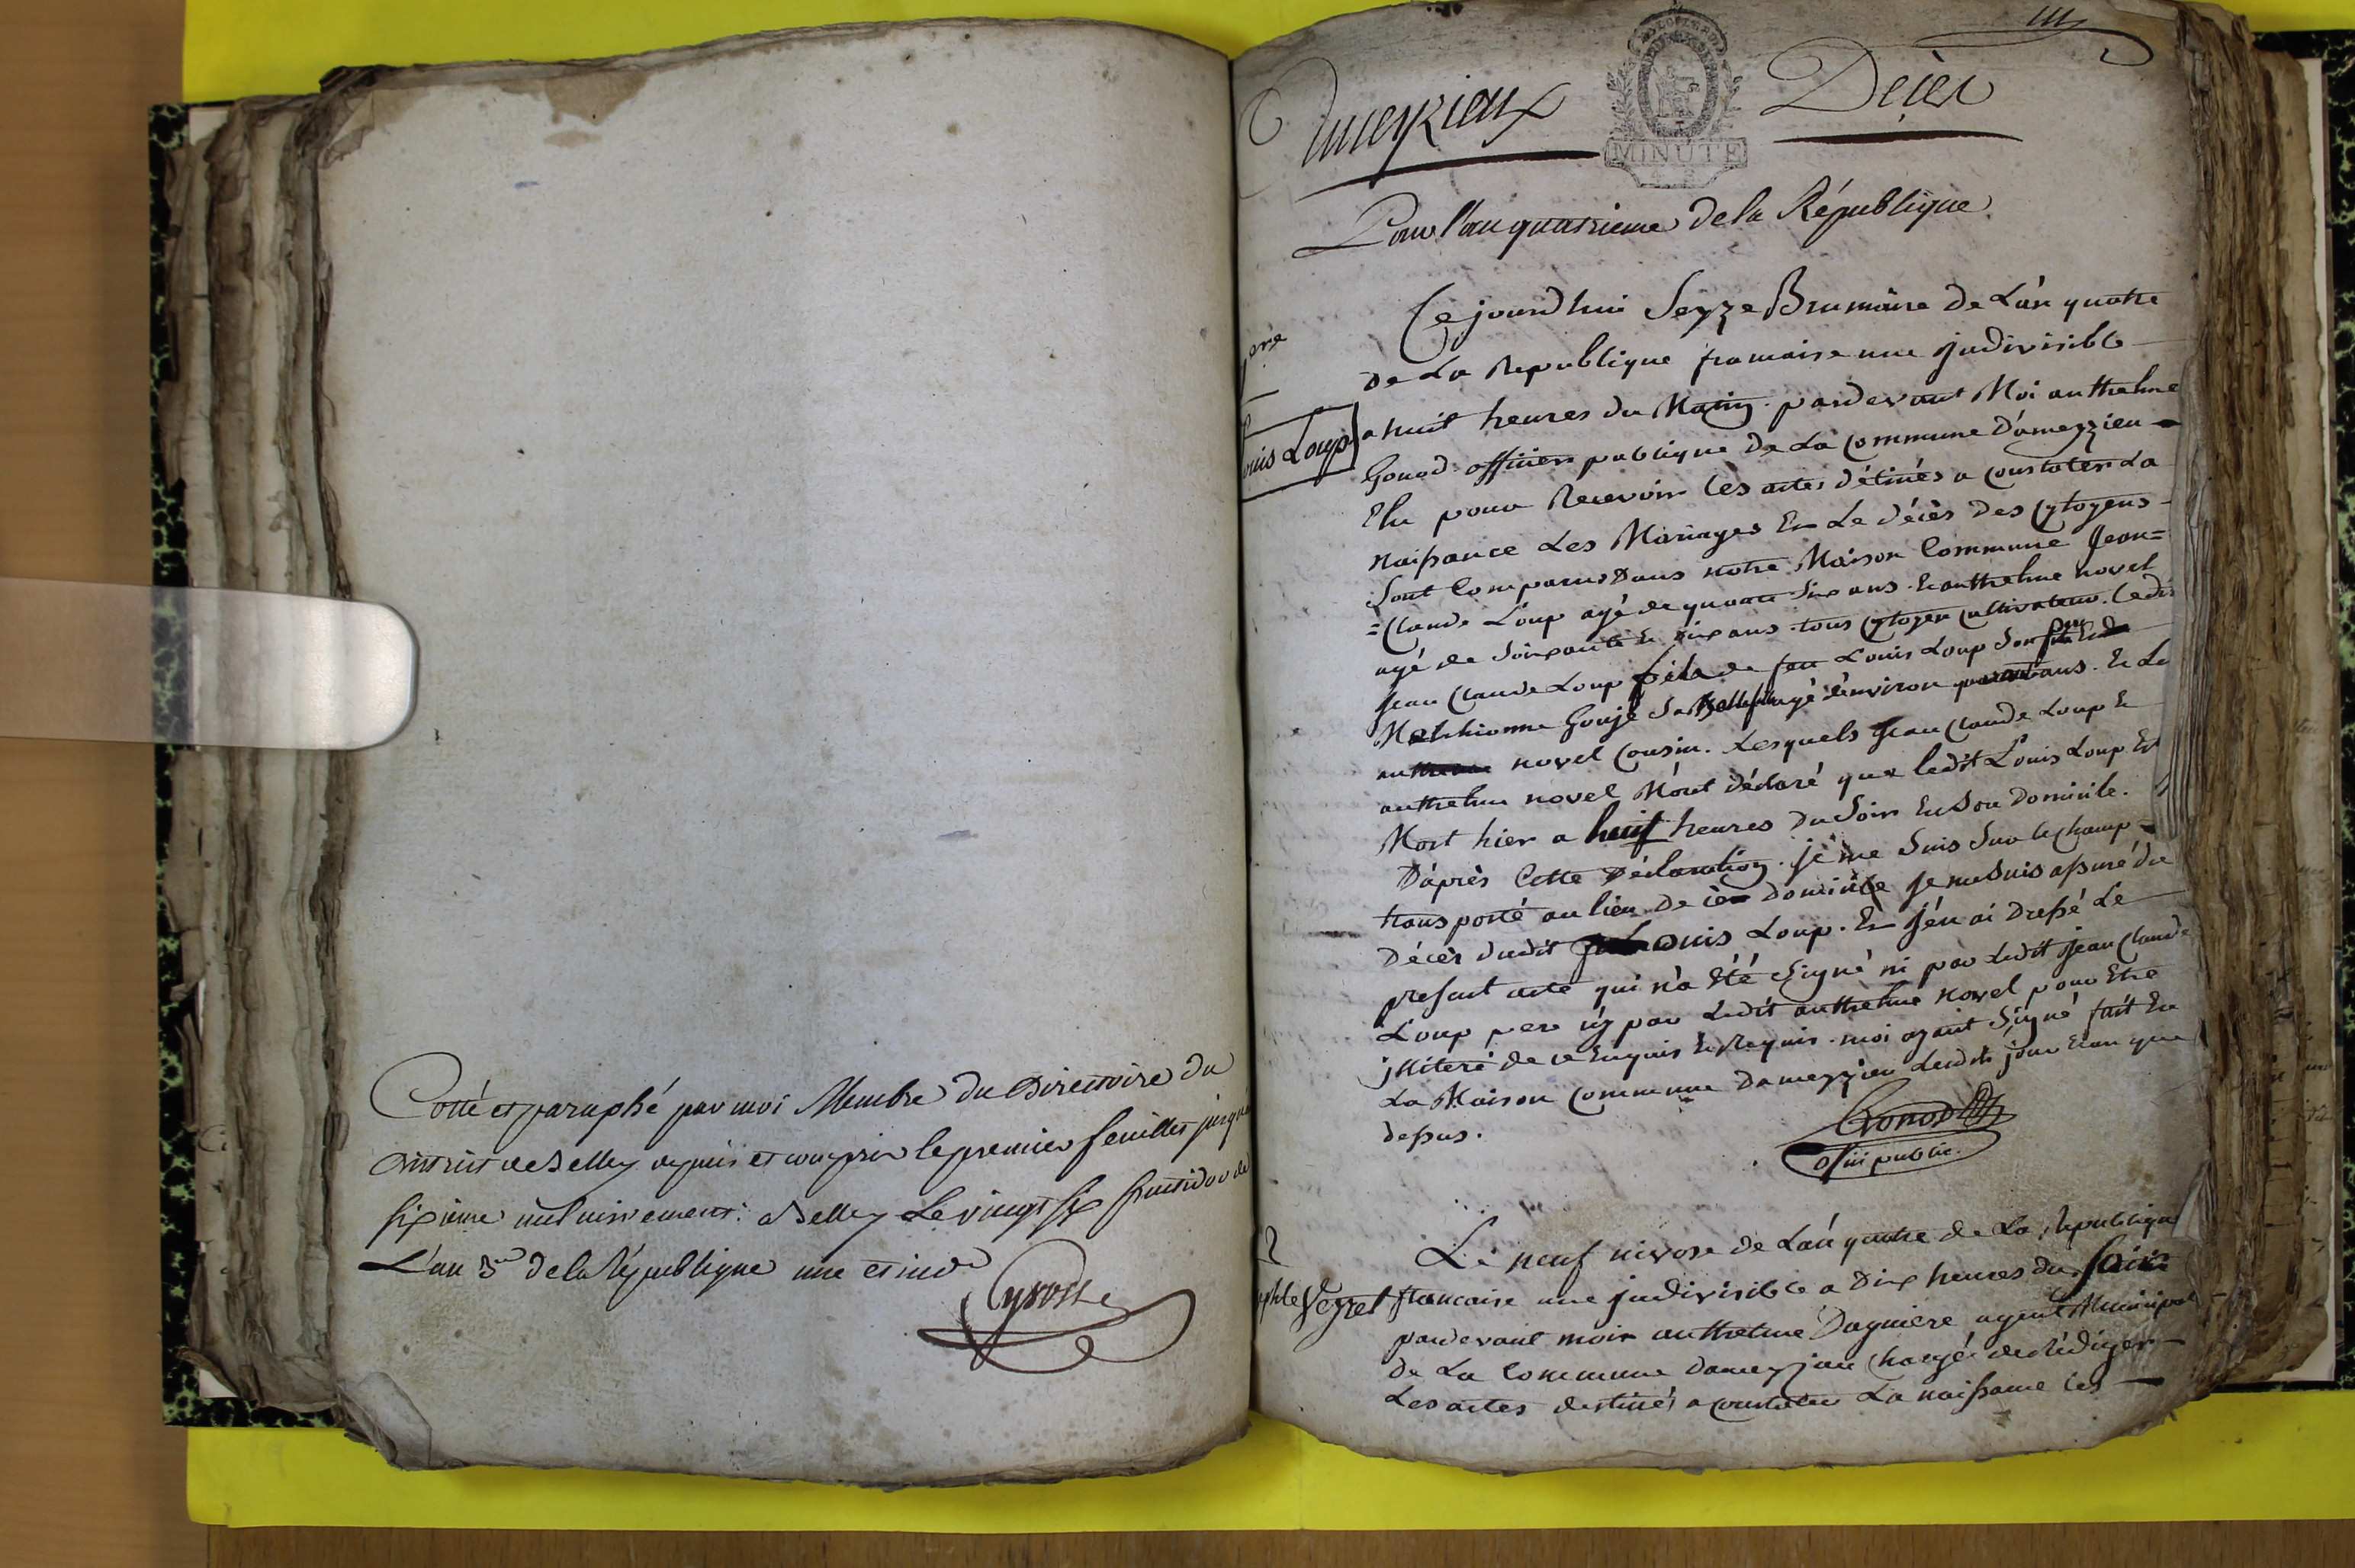 Cotté et paraphé par moi Membre du Directoire du
District de Belley depuis et compris le premier feuillet jusqu'au
sixieme inclusivement. a Belley Le vingt six fructidor de
L'an 3e de la République une et indle
Cyvoct
Ameyzieux
MINUTE
Décès
Pour l'an quatrieme de la République
1ere
Louis Loup
Cejourdhui Seyze Brumaire de L'an quatre
de La Republique francaise une jndivisible
a huit heures du Matin. pardevant Moi anthelme
Gonod officier publique de La Commune D'ameyzieu
Elu pour Recevoir les actes détinés a Constater La
naissance Les Mariages Et Le décès des Cytoyens
Sont Comparus Dans notre Maison Commune Jean=
=Claude Loup agé de quatre Six ans. Et anthelme novel
agé de Soixante Et dix ans. tous Cytoyen Cultivateur. Ledit
Jean Claude Loup de feu Louis Loup Son
agé d'environ ans. Et Le
novel Cousin. Lesquels Jean Claude Loup Et
anthelme novel M'ont déclaré que ledit Louis Loup Est
Mort hier a huit heures du Soir En Son Domicile.
D'après Cette Déclaration. je me Suis Sur le champ
transporté au lieu de ce domicile je me Suis assuré du
Décès dudit Louis Loup. Et j'en ai Dressé Le
present acte qui n'a Eté Signé ni par Ledit jean Claude
Loup per ny par Ledit anthelme novel pour Etre
jlliteré de ce Enquis Et Requis. moi ayant Signé fait En
La Maison Commune Dameyzieu Lesdits jour Et an que
dessus.
Gonod
offii public.
2
Veyret
Le neuf nivose de L'an quatre de La Republique
francaise une jndivisible a Dix heures du
pardevant moi anthelme Dagniere agent Municipal
de La Commune Dameyzieu Chargé de Rédiger
Les actes destinés a Constater La naissance Les